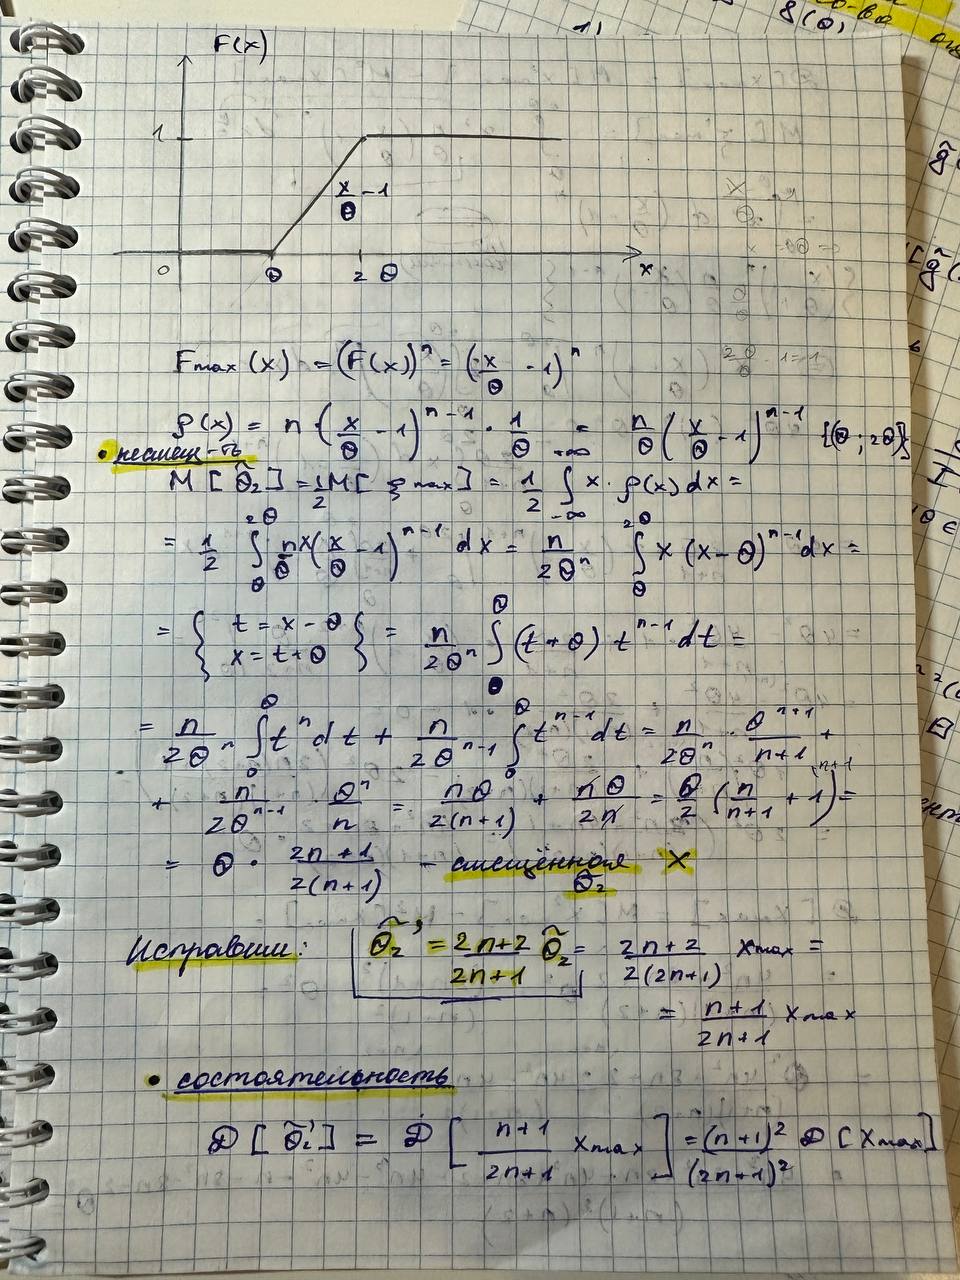 F(x)
1
x/θ - 1
0 θ 2θ x
Fmax(x) = (F(x))^n = (x/θ - 1)^n
ρ(x) = n · (x/θ - 1)^{n-1} · 1/θ = n/θ (x/θ - 1)^{n-1} {(θ; 2θ)}
• несмещ-ть
M[θ̃₂] = 1/2 M[ξmax] = 1/2 ∫_{-∞}^{+∞} x · ρ(x) dx =
= 1/2 ∫_θ^{2θ} n/θ x (x/θ - 1)^{n-1} dx = n/2θ^n ∫_θ^{2θ} x (x - θ)^{n-1} dx =
= { t = x - θ
x = t + θ } = n/2θ^n ∫_0^θ (t + θ) t^{n-1} dt =
= n/2θ^n ∫_0^θ t^n dt + n/2θ^{n-1} ∫_0^θ t^{n-1} dt = n/2θ^n · θ^{n+1}/n+1 +
+ n/2θ^{n-1} θ^n/n = nθ/2(n+1) + nθ/2n = θ/2 (n/n+1 + 1^{(n+1}) =
= θ · 2n+1/2(n+1) - смещённая X
θ̃₂
Исправим: θ̃₂' = 2n+2/2n+1 θ̃₂ = 2n+2/2(2n+1) xmax =
= n+1/2n+1 xmax
• состоятельность
D[θ̃₂'] = D[n+1/2n+1 xmax] = (n+1)²/(2n+1)² D[xmax]